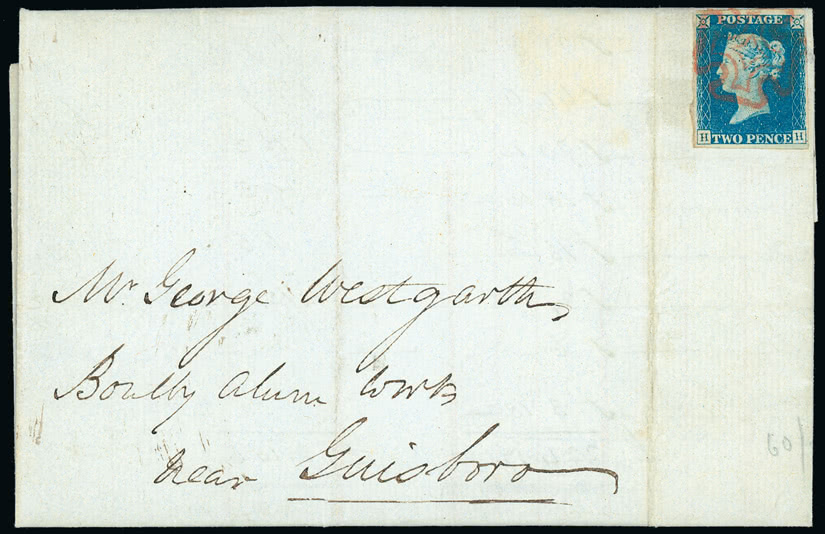 POSTAGE
H TWO PENCE H
Mr. George Westgarth
Boulby Alum Works
near Guisboro
60/